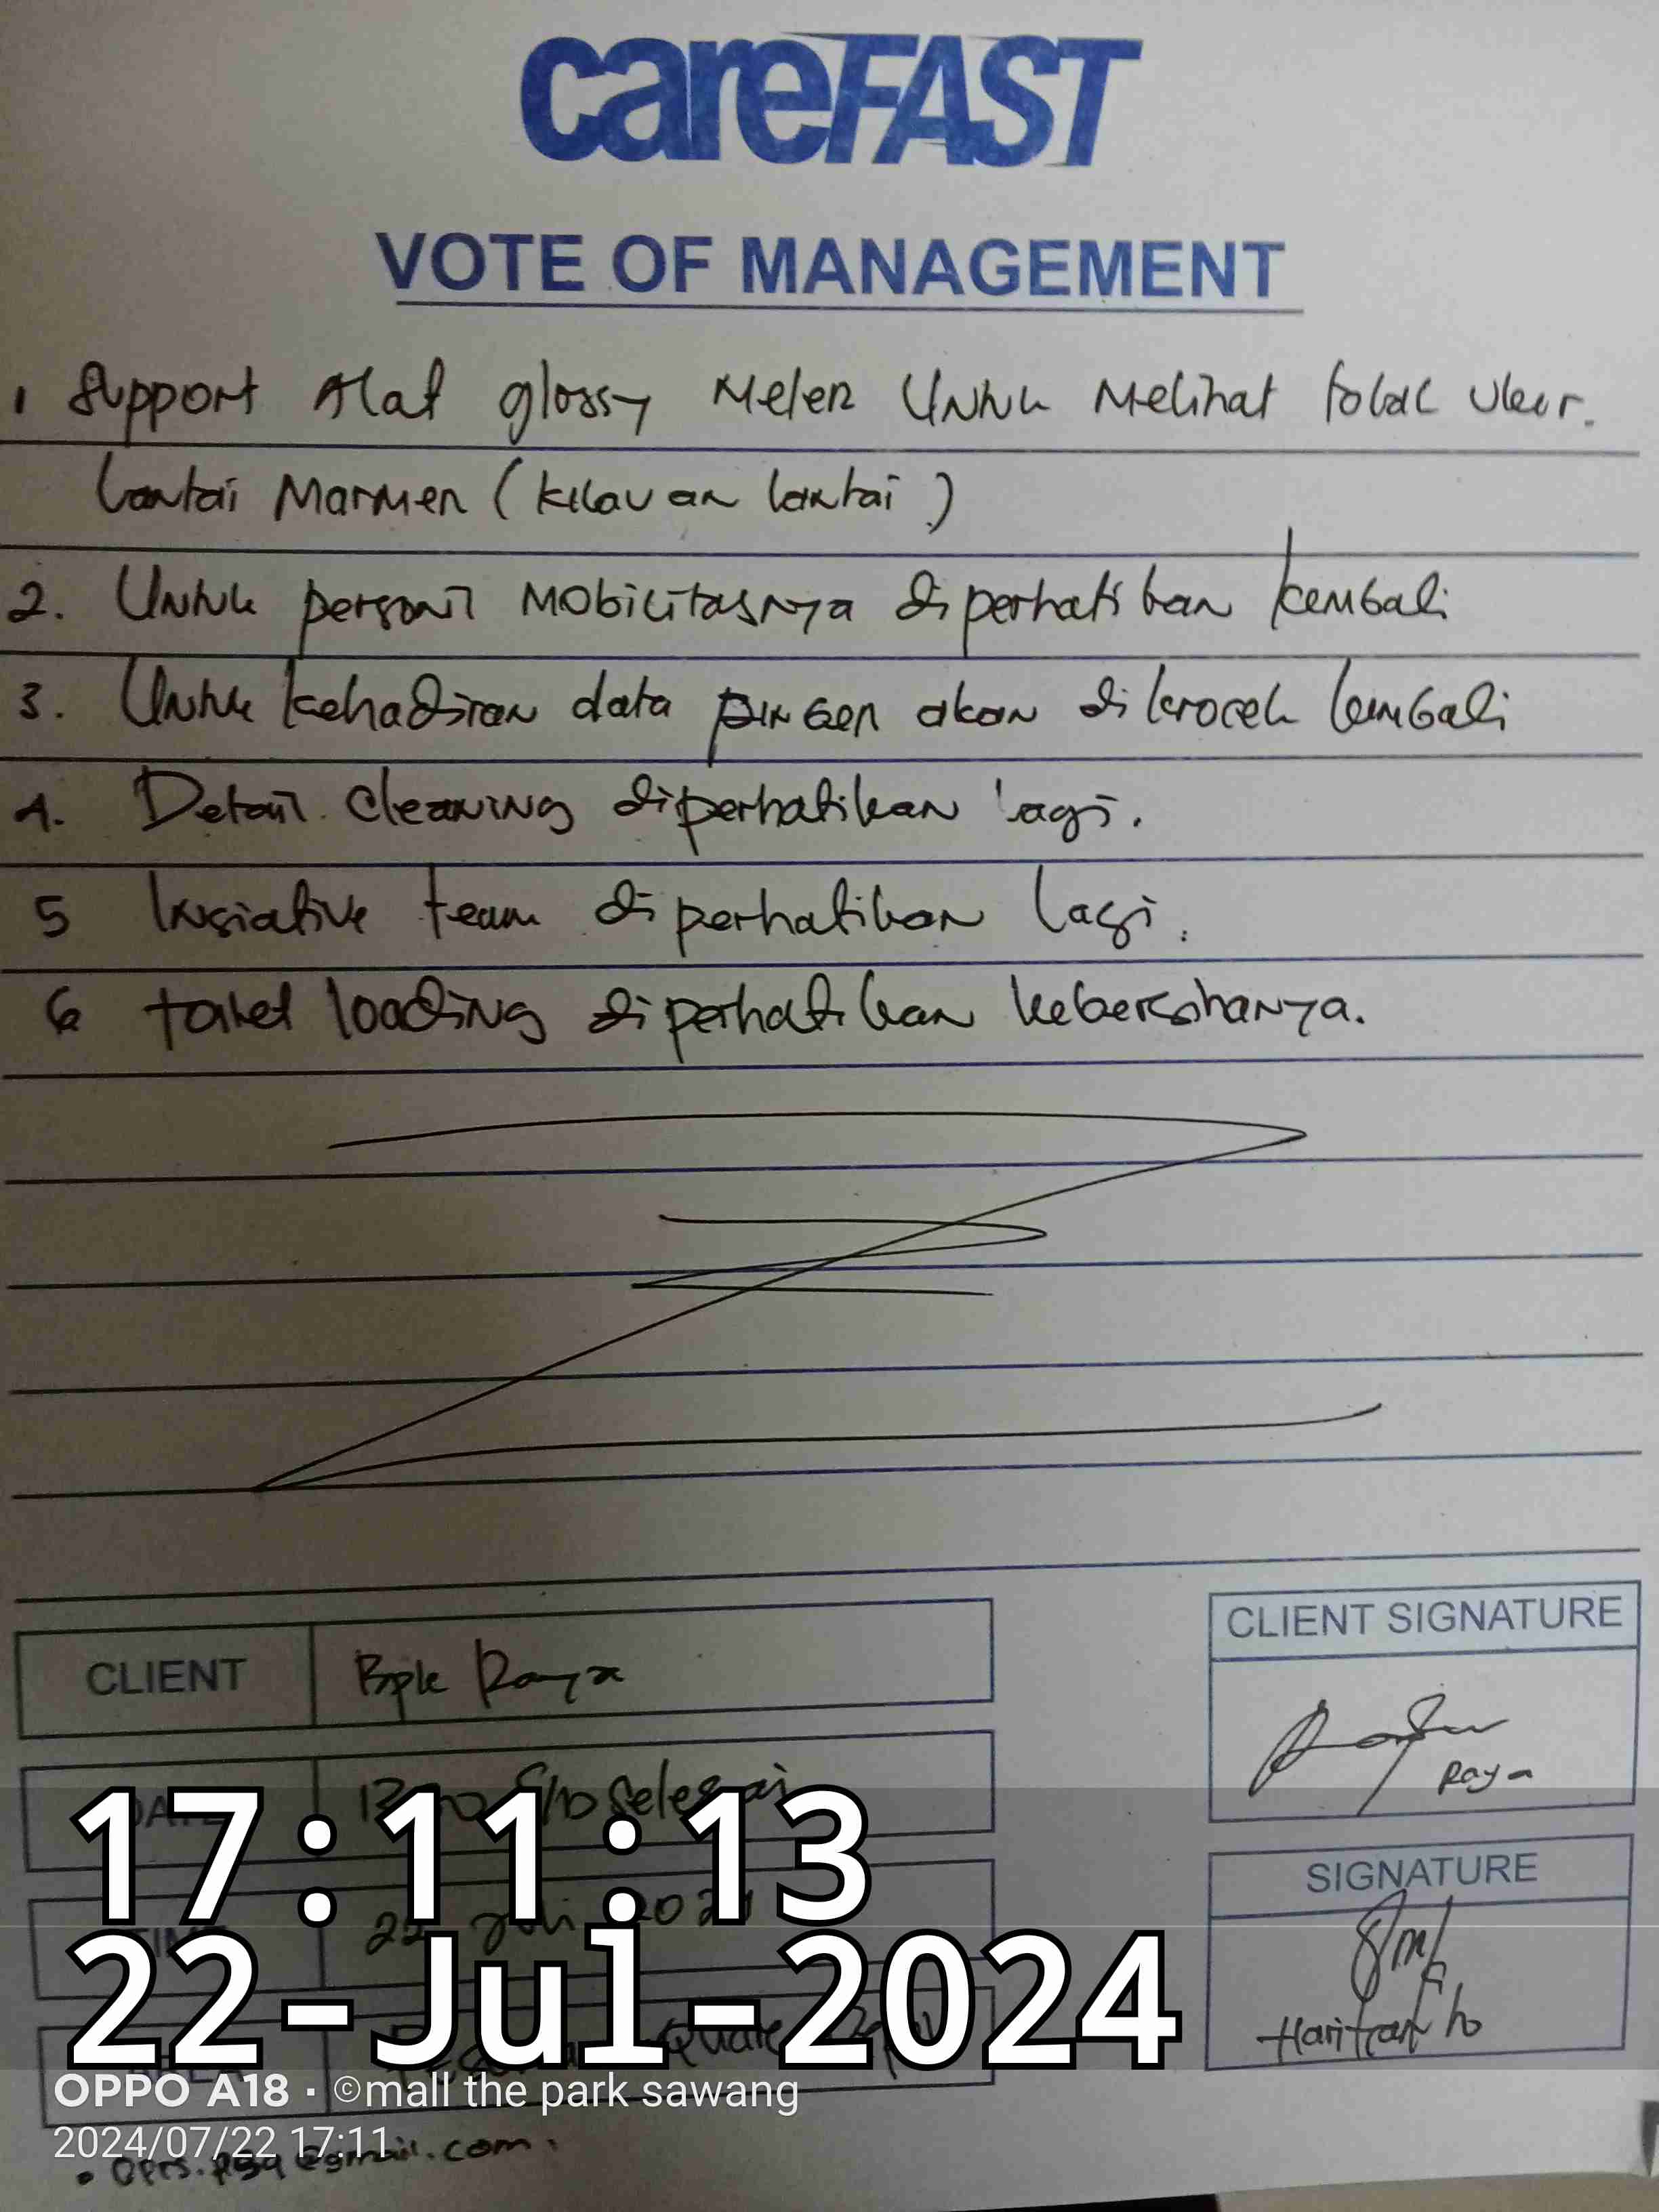 careFAST
VOTE OF MANAGEMENT
1 Support Alat glossy Meter Untuk Melihat tolak ukur.
Lantai Marmer (kilauan lantai)
2. Untuk personil Mobilitasnya diperhatikan kembali
3. Untuk kehadiran data finger akan dikrocek kembali
4. Detail cleaning diperhatikan lagi.
5 Inisiative team diperhatikan lagi.
6 toilet loading diperhatikan kebersihanya.
CLIENT Bpk Raya
CLIENT SIGNATURE
Raya
DATE s/d Selesai
TIME 22 Juli 2024
SIGNATURE
Haritranto
17:11:13
22-Jul-2024
OPPO A18 · ©mall the park sawang
2024/07/22 17:11
@gmail.com